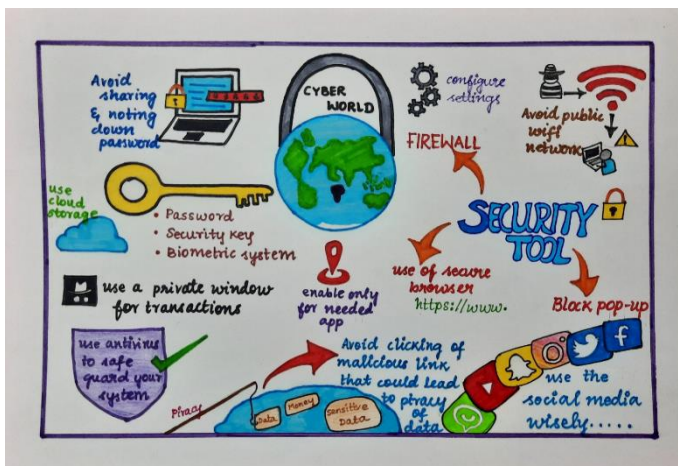 Avoid
sharing
& noting
down
password
CYBER
WORLD
configure
settings
Avoid public
wifi
network
FIREWALL
use
cloud
storage
• Password
• Security key
• Biometric system
SECURITY
TOOL
use of secure
browser
https://www.
Block pop-up
use a private window
for transactions
enable only
for needed
app
use antivirus
to safe
guard your
system
Avoid clicking of
malicious link
that could lead
to piracy
of
data
Piracy
Data
Money
Sensitive
Data
use the
social media
wisely.....